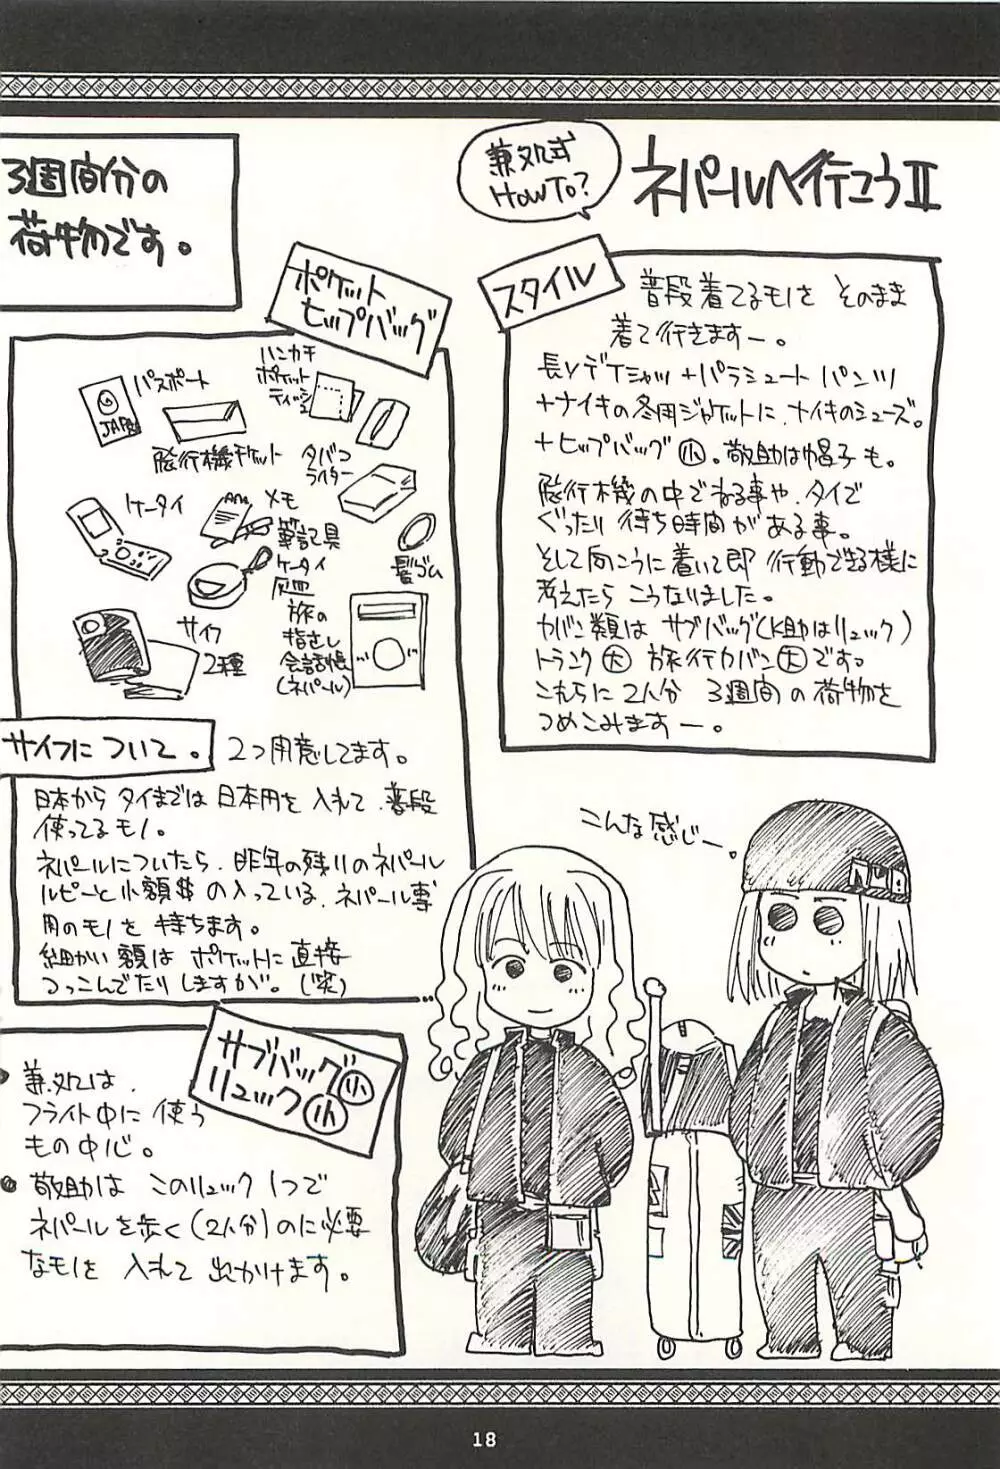 ネパールへ行こうⅡ
兼処式
HOWTO?
スタイル
普段着てるモノを そのまま
着て行きますー。
長Vデ Tシャツ+パラシュート パンツ
+ナイキの冬用ジャケットに ナイキのシューズ。
+ヒップバッグ小。敬助は帽子も。
飛行機の中でねる事や、タイで
ぐったり 待ち時間がある事。
そして向こうに着いて即 行動できる様に
考えたら こうなりました。
カバン類は サブバッグ(K助はリュック)
トランク大 旅行カバン大です。
これらに 2人分 3週間の荷物を
つめこみますー。
3週間分の
荷物です。
ポケット
ヒップバッグ
パスポート
JAPA
飛行機チケット
ハンカチ
ポケット
ティッシュ
タバコ
ライター
ケータイ
メモ
筆記具
ケータイ
灰皿
髪ゴム
サイフ
2種
旅の
指さし
会話帳
(ネパール)
サイフについて。
2つ用意してます。
日本から タイまでは 日本円を 入れて 普段
使ってるモノ。
ネパールについたら、昨年の残りのネパール
ルピーと小額$の入っている、ネパール専
用のモノを 持ちます。
細かい額は ポケットに 直接
つっこんでたりしますが。(笑)
サブバッグ小
リュック小
兼処は、
フライト中に 使う
もの中心。
敬助は このリュック 1つで
ネパールを歩く(2人分)のに必要
なモノを 入れて 出かけます。
こんな感じー。
18